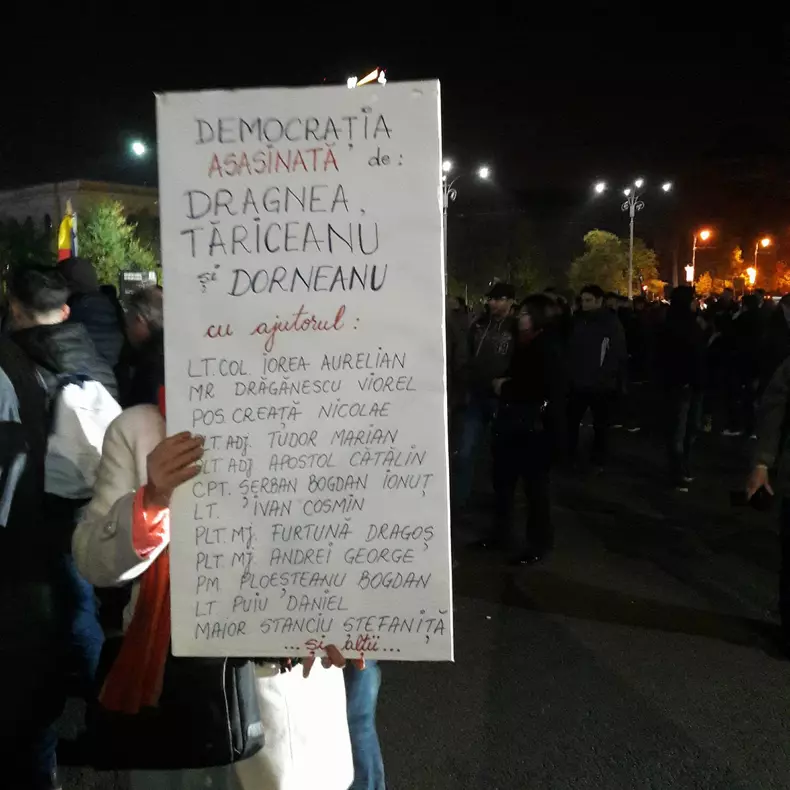 DEMOCRAȚIA
ASASINATĂ de:
DRAGNEA,
TĂRICEANU
și DORNEANU
cu ajutorul:
LT.COL. IOREA AURELIAN
MR. DRĂGĂNESCU VIOREL
POS. CREAȚĂ NICOLAE
PLT. ADJ. TUDOR MARIAN
PLT ADJ APOSTOL CĂTĂLIN
CPT. ȘERBAN BOGDAN IONUȚ
LT. IVAN COSMIN
PLT. MJ. FURTUNĂ DRAGOȘ
PLT. MJ. ANDREI GEORGE
PM PLOEȘTEANU BOGDAN
LT PUIU DANIEL
MAIOR STANCIU ȘTEFANIȚĂ
...și alții...